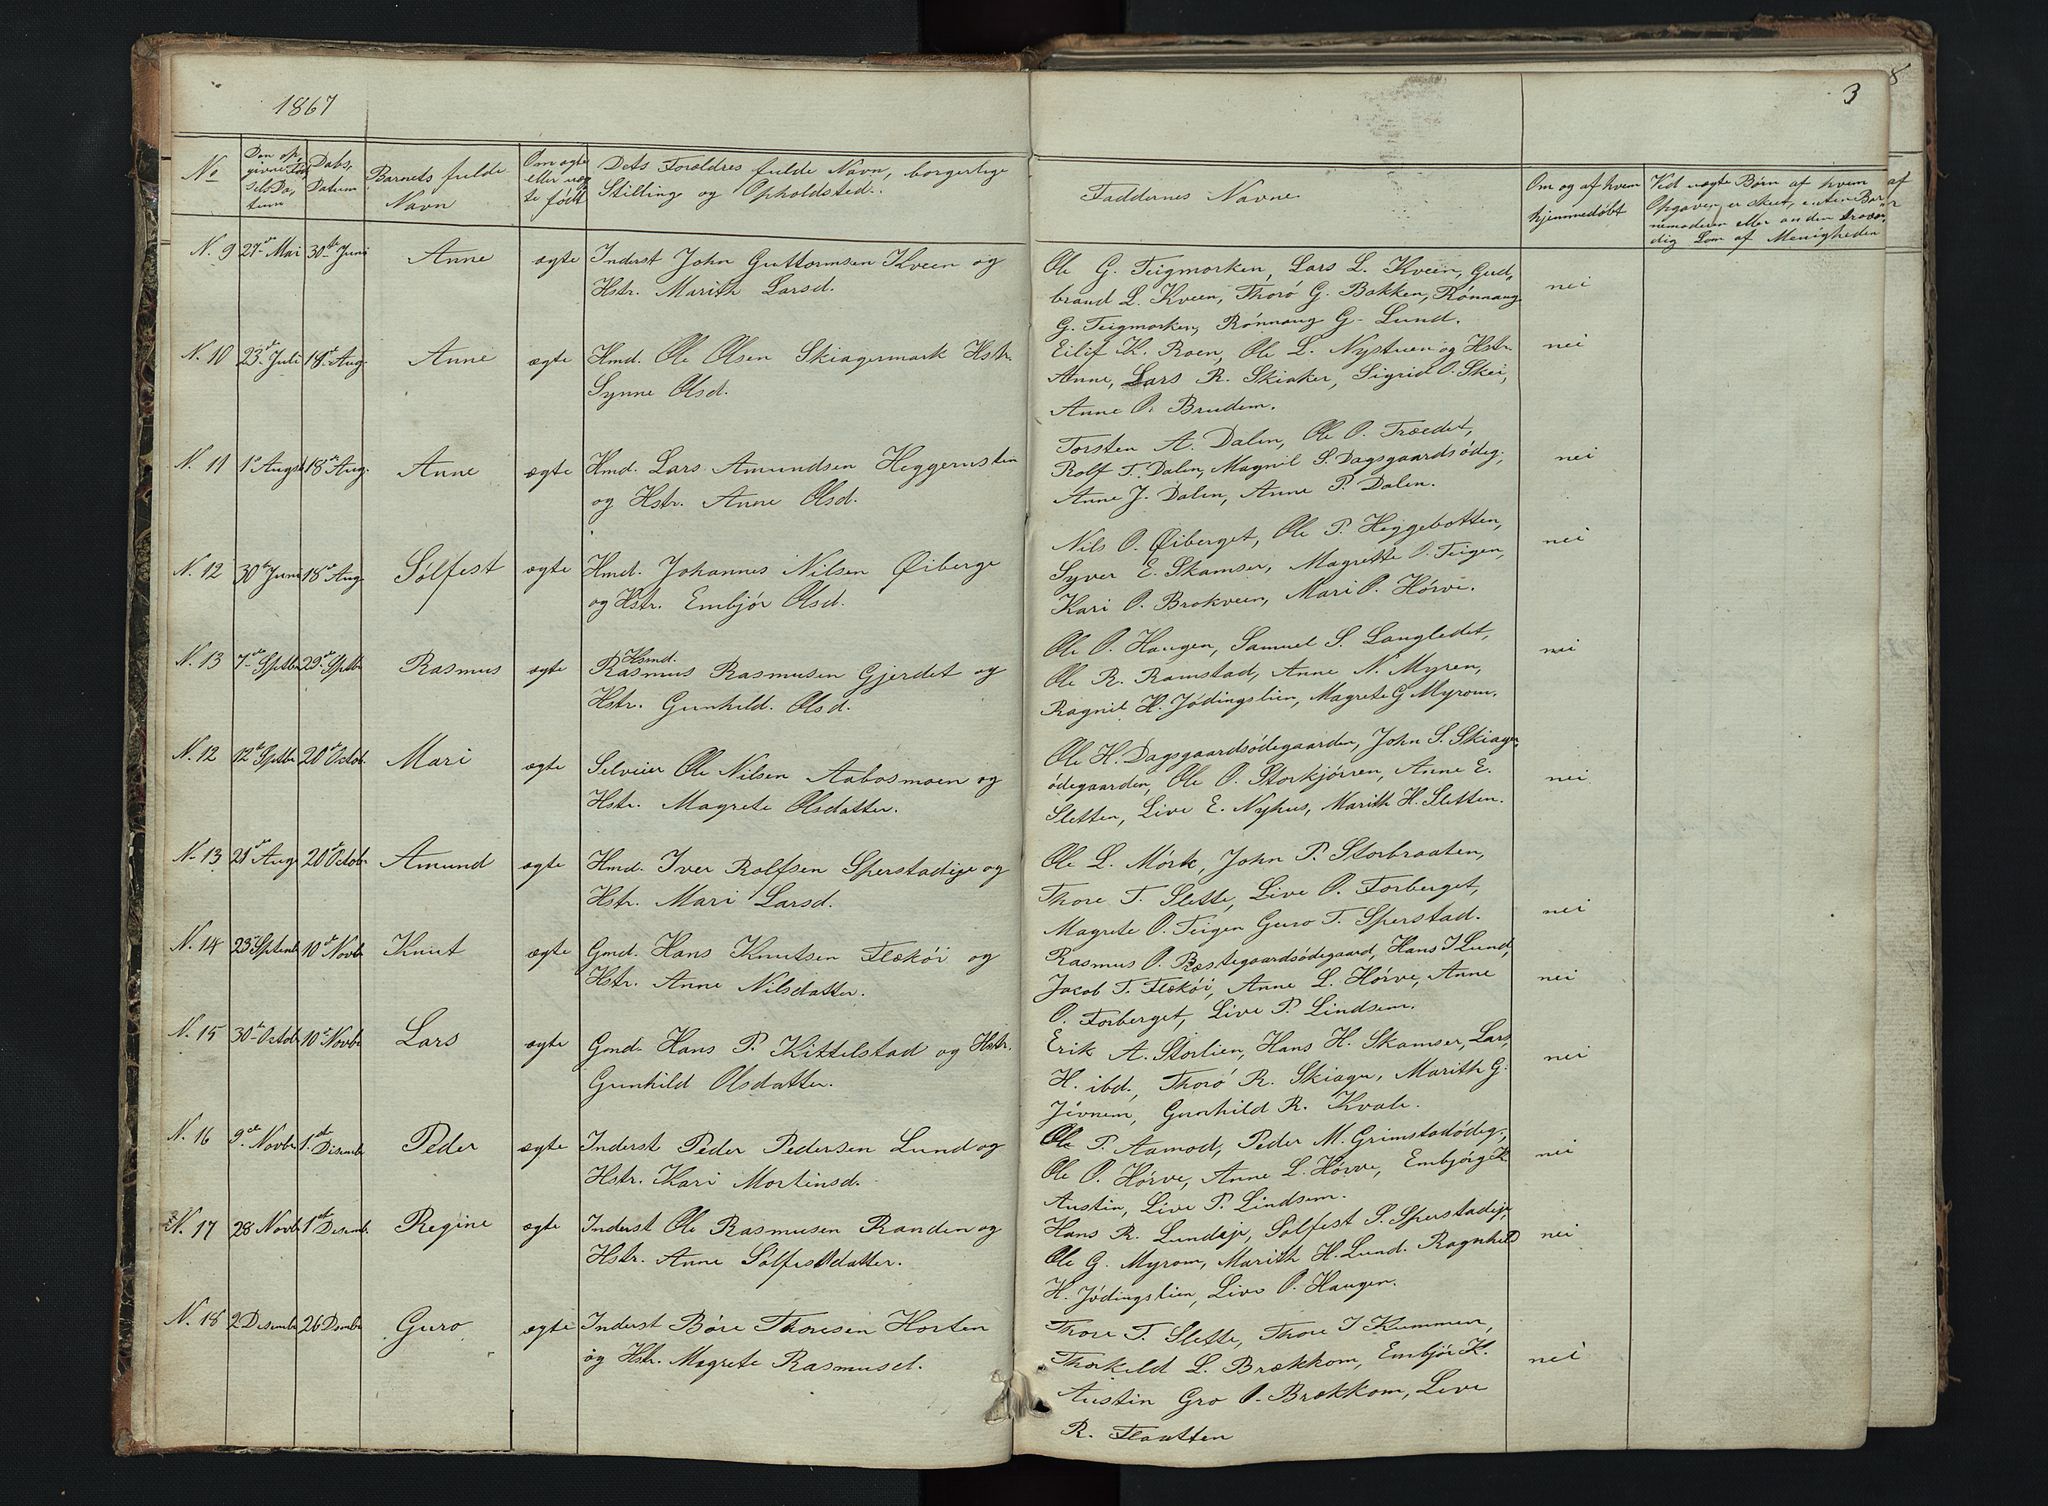 1867
3
No
Den op-
givne Fød-
selsDa-
tum
Dabs-
Datum
Barnets fulde
Navn
Om ægte
eller uæg-
te født
Dets Forældres fulde Navn, borgerlige
Stilling og Opholdsted.
Faddernes Navne.
Om og af hvem
hjemmedøbt
Ved uægte Børn af hvem
Opgaven er skeet, enten Bar-
nemoderen eller anden troværdig
Lem af Menigheden
N. 9 27de Mai 30te Juni Anne ægte Inderst John Guttormsen Kveen og
Hstr. Marith Larsd.
Ole G. Teigmorken, Lars L. Kveen, Gud-
brand L. Kveen, Thorø G. Bakken, Rønnaug
G. Teigmorken, Rønnaug G. Lund.
nei
N. 10 23de Juli 18de Aug. Anne ægte Hmd. Ole Olsen Skiagermark Hstr.
Synne Olsd.
Eilif K. Roen, Ole L. Nystuen og Hstr.
Anne, Lars R. Skiaker, Sigrid O. Skei,
Anne O. Bruden.
nei
N. 11 1ste Augst 18de Aug. Anne ægte Hmd. Lars Amundsen Heggernstein
og Hstr. Anne Olsd.
Torsten A. Dalen, Ole O. Træedet,
Rolf T. Dalen, Magnil S. Dagsgaardsødeg,
Anne J. Dalen, Anne P. Dalen.
nei
N. 12 30te Juni 18de Aug. Sølfest ægte Hmd. Johannes Nilsen Øiberge
og Hstr. Embjør Olsd.
Nils O. Øiberget, Ole P. Heggebotten,
Syver E. Skamser, Magrette O. Teigen,
Kari O. Brokveen, Mari O. Hørve.
nei
N. 13 7de Septbr 29de Septbr Rasmus ægte Hsmd.
Rasmus Rasmusen Gjerdet og
Hstr. Gunhild Olsd.
Ole O. Haugen, Samuel S. Langledet,
Ole R. Ramstad, Anne N. Myren,
Ragnil H. Jødingslien, Magrete G Myrom.
nei
N. 12 12te Septbr 20de Octob. Mari ægte Selveier Ole Nilsen Aabosmoen og
Hstr. Magrete Olsdatter.
Ole H. Dagsgaardsødegaarden, John S. Skiager-
ødegaarden, Ole O. Storkjørren, Anne E.
Sletten, Live E. Nyhus, Marith H. Sletten.
nei
N. 13 21de Aug 20de Octob Amund ægte Hmd. Iver Rolfsen Sperstadeje og
Hstr. Mari Larsd.
Ole L. Mørk, John P. Storbraaten,
Thore T. Slette, Live O. Forberget,
Magrete O. Teigen Guro T. Sperstad.
nei
N. 14 23de Septemb 10de Novb Knut ægte Gmd. Hans Knutsen Flækøi og
Hstr. Anne Nilsdatter.
Rasmus O. Præstegaardsødegaard, Hans J Lund,
Jacob T. Flækøi, Anne L. Hørve, Anne
O. Forberget, Live P. Lindsem.
nei
N. 15 30te Octob 10de Novbr Lars ægte Gmd. Hans P. Kittelstad og Hstr.
Gunhild Olsdatter.
Erik A. Storlien, Hans H. Skamser, Lars
H. ibd, Thorø R. Skiager, Marith G.
Jevnem, Gunhild R. Kvale.
nei
N. 16 9de Novbr 1ste Disembr Peder ægte Inderst Peder Pedersen Lund og
Hstr. Kari Mortensd.
Ole P. Aamod, Peder M. Grimstadødeg.,
Ole O. Hørve, Anne L. Hørve, Embjørg K.
Austin, Live P. Lindsem.
nei
N. 17 28 Novbr 1ste Desemb. Regine ægte Inderst Ole Rasmusen Randen og
Hstr. Anne Sølfestdatter.
Hans R. Lundeje, Sølfest S. Sperstadeje
Ole G. Myrom, Marith H. Lund. Ragnhild
H. Jødingslien, Live O. Haugen.
nei
N. 18 2 Desembr 26 Dembr Guro ægte Inderst Børe Thoresen Horten
og Hstr. Magrete Rasmusd.
Thore T. Slette, Thore J Kummen,
Thorkild L. Brækkom, Embjør K.
Austin Gro O. Brækkom, Live
R. Flaatten
nei